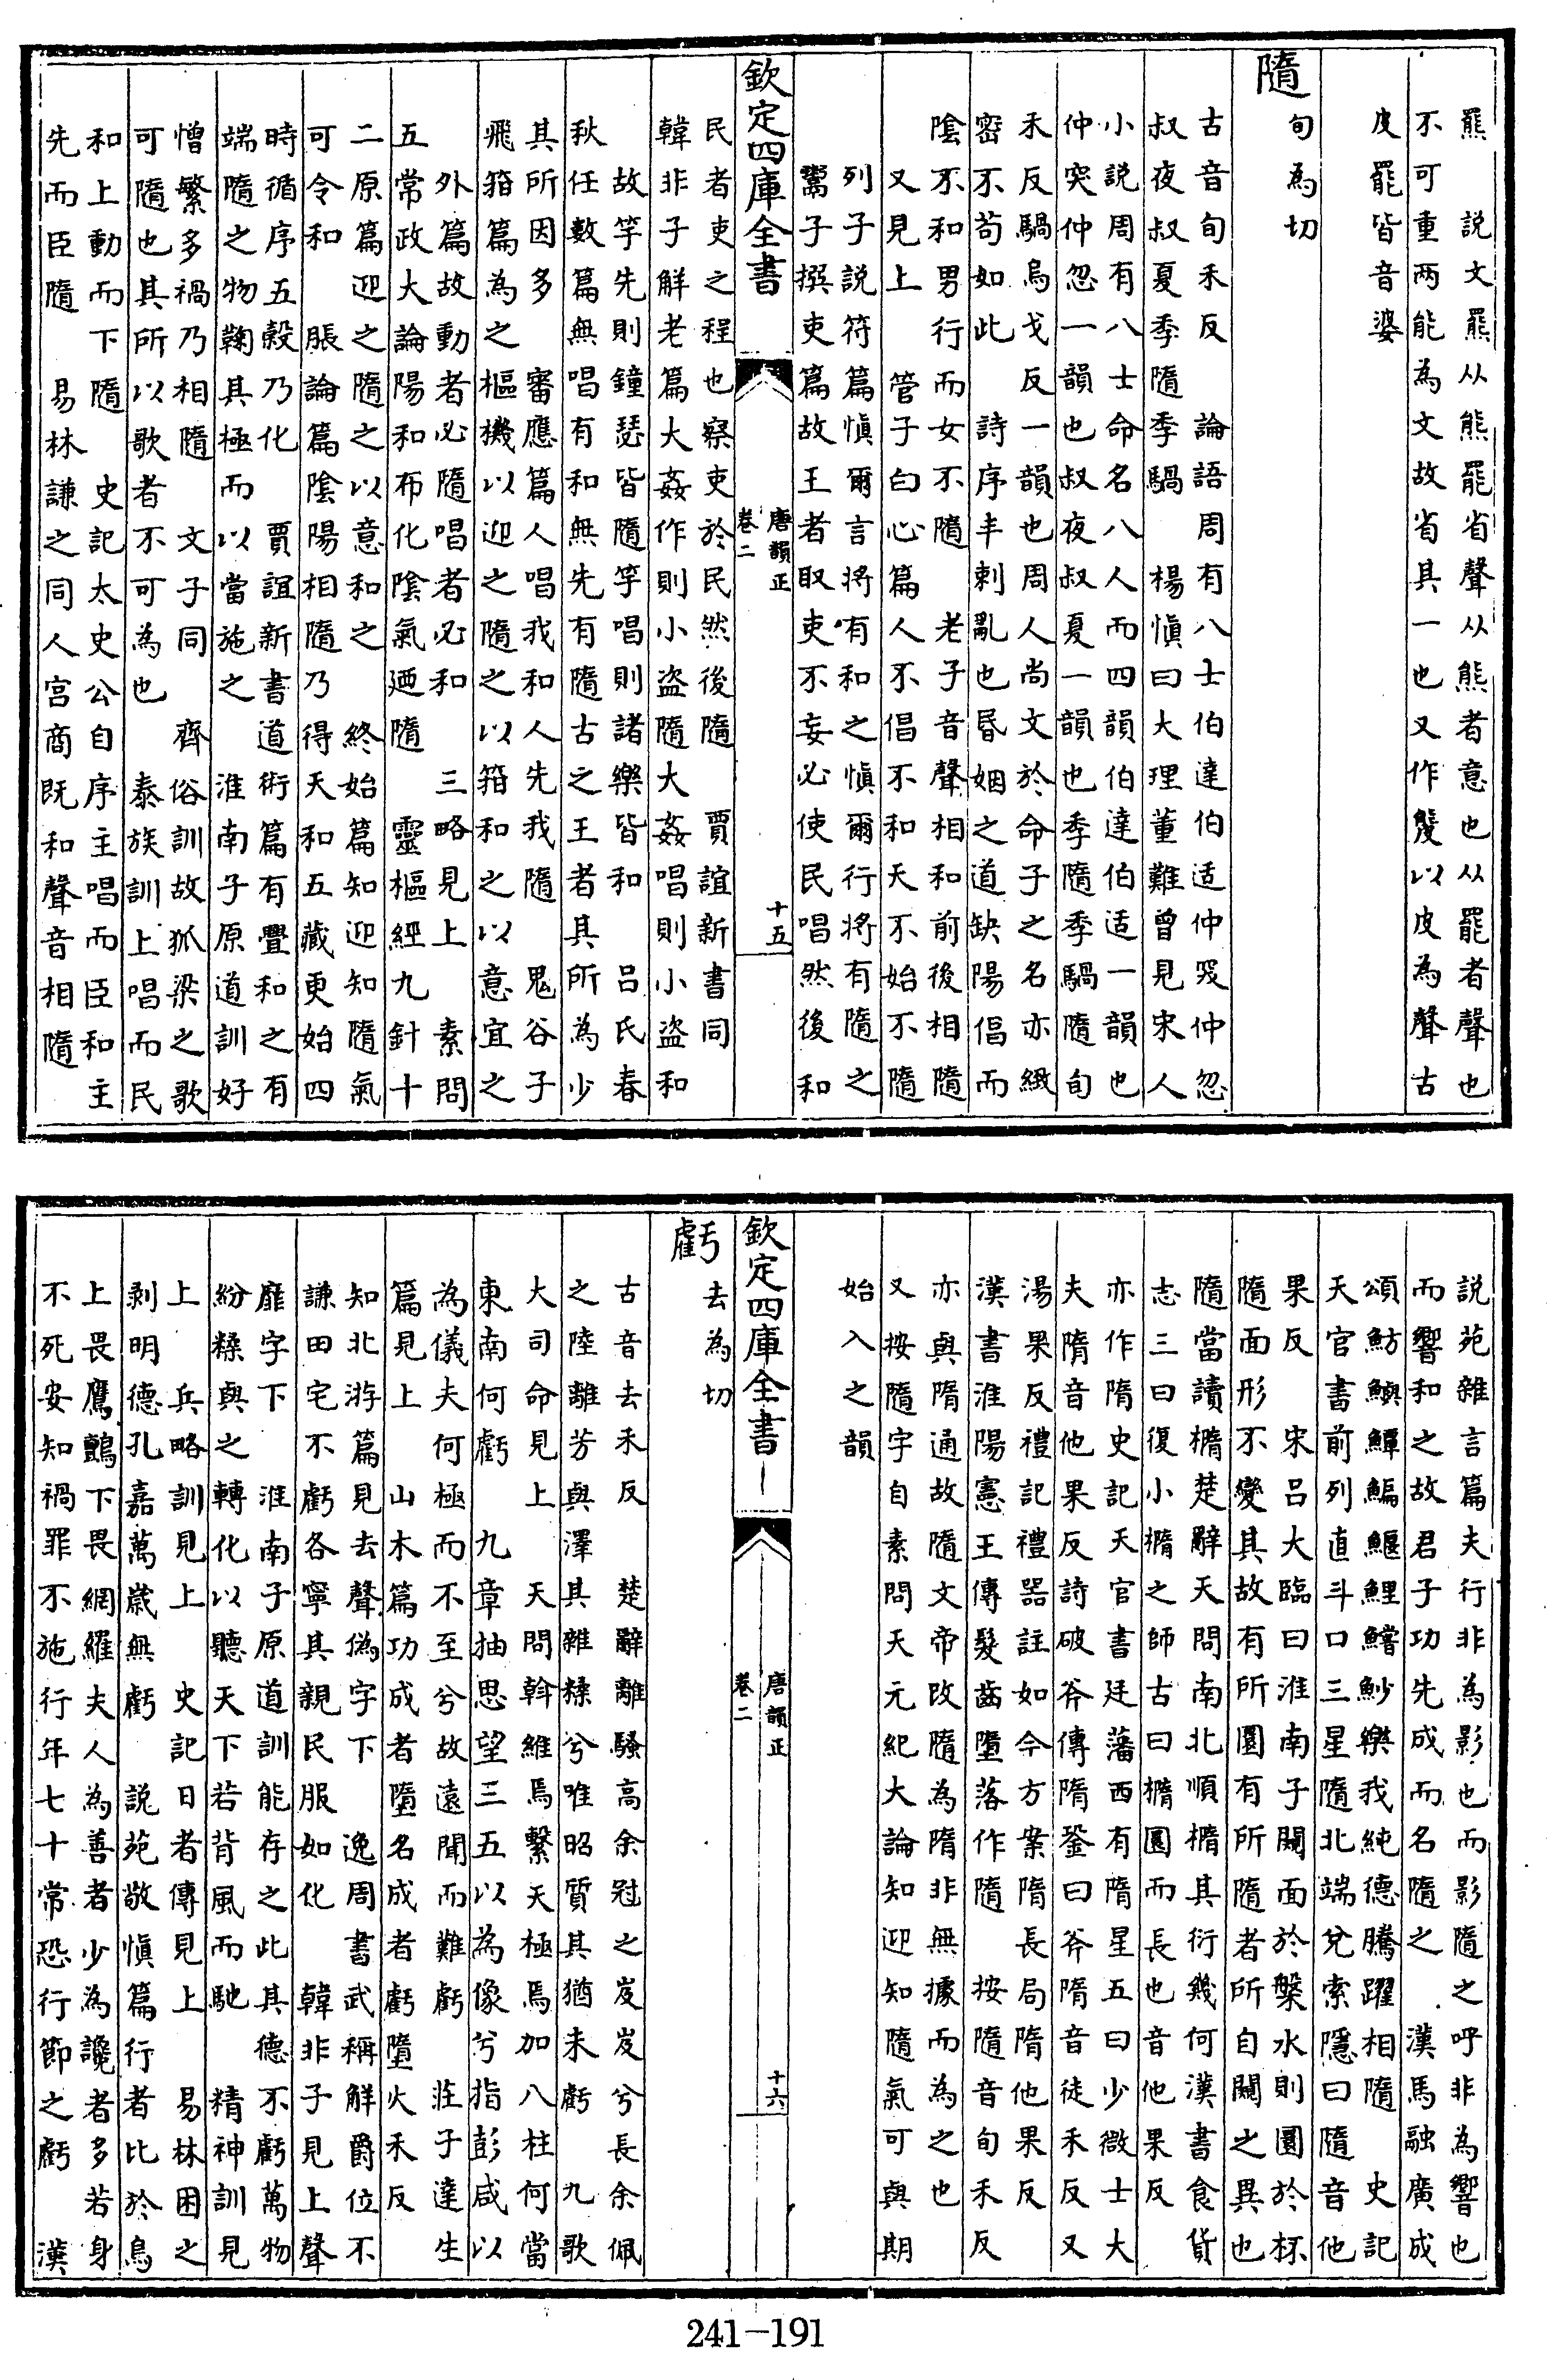 羆　説文羆从熊罷省聲从熊者意也从罷者聲也
不可重兩能為文故省其一也又作㲋以皮為聲古
皮罷皆音婆
隨
旬為切
古音旬禾反　論語周有八士伯達伯适仲突仲忽
叔夜叔夏季隨季騧　楊慎曰大理董難曾見宋人
小説周有八士命名八人而四韻伯達伯适一韻也
仲突仲忽一韻也叔夜叔夏一韻也季隨季騧隨旬
禾反騧烏戈反一韻也周人尚文於命子之名亦緻
密不苟如此　詩序丰刺亂也昏姻之道缺陽倡而
陰不和男行而女不隨　老子音聲相和前後相隨
又見上　管子白心篇人不倡不和天不始不隨
列子説符篇慎爾言將有和之慎爾行將有隨之
鬻子撰吏篇故王者取吏不妄必使民唱然後和
欽定四庫全書
唐韻正
卷二
十五
民者吏之程也察吏於民然後隨　賈誼新書同
韓非子解老篇大姦作則小盜隨大姦唱則小盜和
故竽先則鐘瑟皆隨竽唱則諸樂皆和　呂氏春
秋任數篇無唱有和無先有隨古之王者其所為少
其所因多　審應篇人唱我和人先我隨　鬼谷子
飛箝篇為之樞機以迎之隨之以箝和之以意宜之
外篇故動者必隨唱者必和　三略見上　素問
五常政大論陽和布化陰氣廼隨　靈樞經九針十
二原篇迎之隨之以意和之　終始篇知迎知隨氣
可令和　脹論篇陰陽相隨乃得天和五藏更始四
時循序五穀乃化　賈誼新書道術篇有舋和之有
端隨之物鞠其極而以當施之　淮南子原道訓好
憎繁多禍乃相隨　文子同　齊俗訓故狐梁之歌
可隨也其所以歌者不可為也　泰族訓上唱而民
和上動而下隨　史記太史公自序主唱而臣和主
先而臣隨　易林謙之同人宮商既和聲音相隨
説苑雜言篇夫行非為影也而影隨之呼非為響也
而響和之故君子功先成而名隨之　漢馬融廣成
頌魴鱮鱏鯿鰋鯉鱨魦樂我純德騰躍相隨　史記
天官書前列直斗口三星隨北端兌索隱曰隨音他
果反　宋呂大臨曰淮南子闚面於槃水則圜於杯
隨面形不變其故有所圜有所隨者所自闚之異也
隨當讀橢楚辭天問南北順橢其衍幾何漢書食貨
志三曰復小橢之師古曰橢圜而長也音他果反
亦作隋史記天官書廷藩西有隋星五曰少微士大
夫隋音他果反詩破斧傳隋銎曰斧隋音徒禾反又
湯果反禮記禮器註如今方案隋長局隋他果反
漢書淮陽憲王傳髮齒墮落作隨　按隨音旬禾反
亦與隋通故隨文帝改隨為隋非無據而為之也
又按隨字自素問天元紀大論知迎知隨氣可與期
始入之韻
欽定四庫全書
唐韻正
卷二
十六
虧
去為切
古音去禾反　楚辭離騷高余冠之岌岌兮長余佩
之陸離芳與澤其雜糅兮唯昭質其猶未虧　九歌
大司命見上　天問斡維焉繫天極焉加八柱何當
東南何虧　九章抽思望三五以為像兮指彭咸以
為儀夫何極而不至兮故遠聞而難虧　莊子達生
篇見上　山木篇功成者墮名成者虧墮火禾反
知北游篇見去聲偽字下　逸周書武稱解爵位不
謙田宅不虧各寧其親民服如化　韓非子見上聲
靡字下　淮南子原道訓能存之此其德不虧萬物
紛糅與之轉化以聽天下若背風而馳　精神訓見
上　兵略訓見上　史記日者傳見上　易林困之
剥明德孔嘉萬歲無虧　説苑敬慎篇行者比於鳥
上畏鷹鸇下畏網羅夫人為善者少為讒者多若身
不死安知禍罪不施行年七十常恐行節之虧　漢
241-191